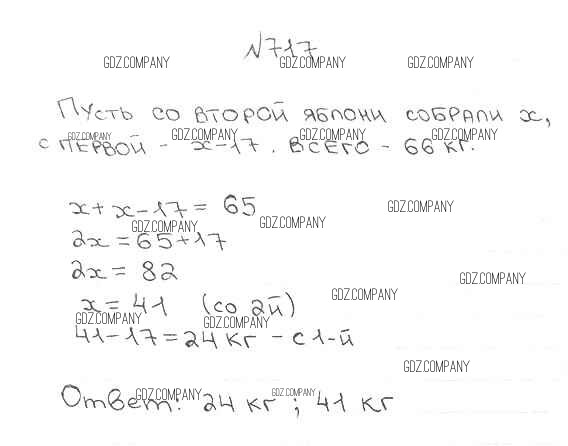 №717
GDZ.COMPANY GDZ.COMPANY GDZ.COMPANY
Пусть со второй яблони собрали x,
GDZ.COMPANY GDZ.COMPANY GDZ.COMPANY GDZ.COMPANY
с первой - x-17. Всего - 66 кг.
x+x-17=65
GDZ.COMPANY
GDZ.COMPANY GDZ.COMPANY
2x=65+17
2x=82
GDZ.COMPANY
GDZ.COMPANY
x=41 (со 2й)
GDZ.COMPANY GDZ.COMPANY
41-17=24 кг - с 1-й
GDZ.COMPANY
GDZ.COMPANY GDZ.COMPANY
Ответ: 24 кг; 41 кг